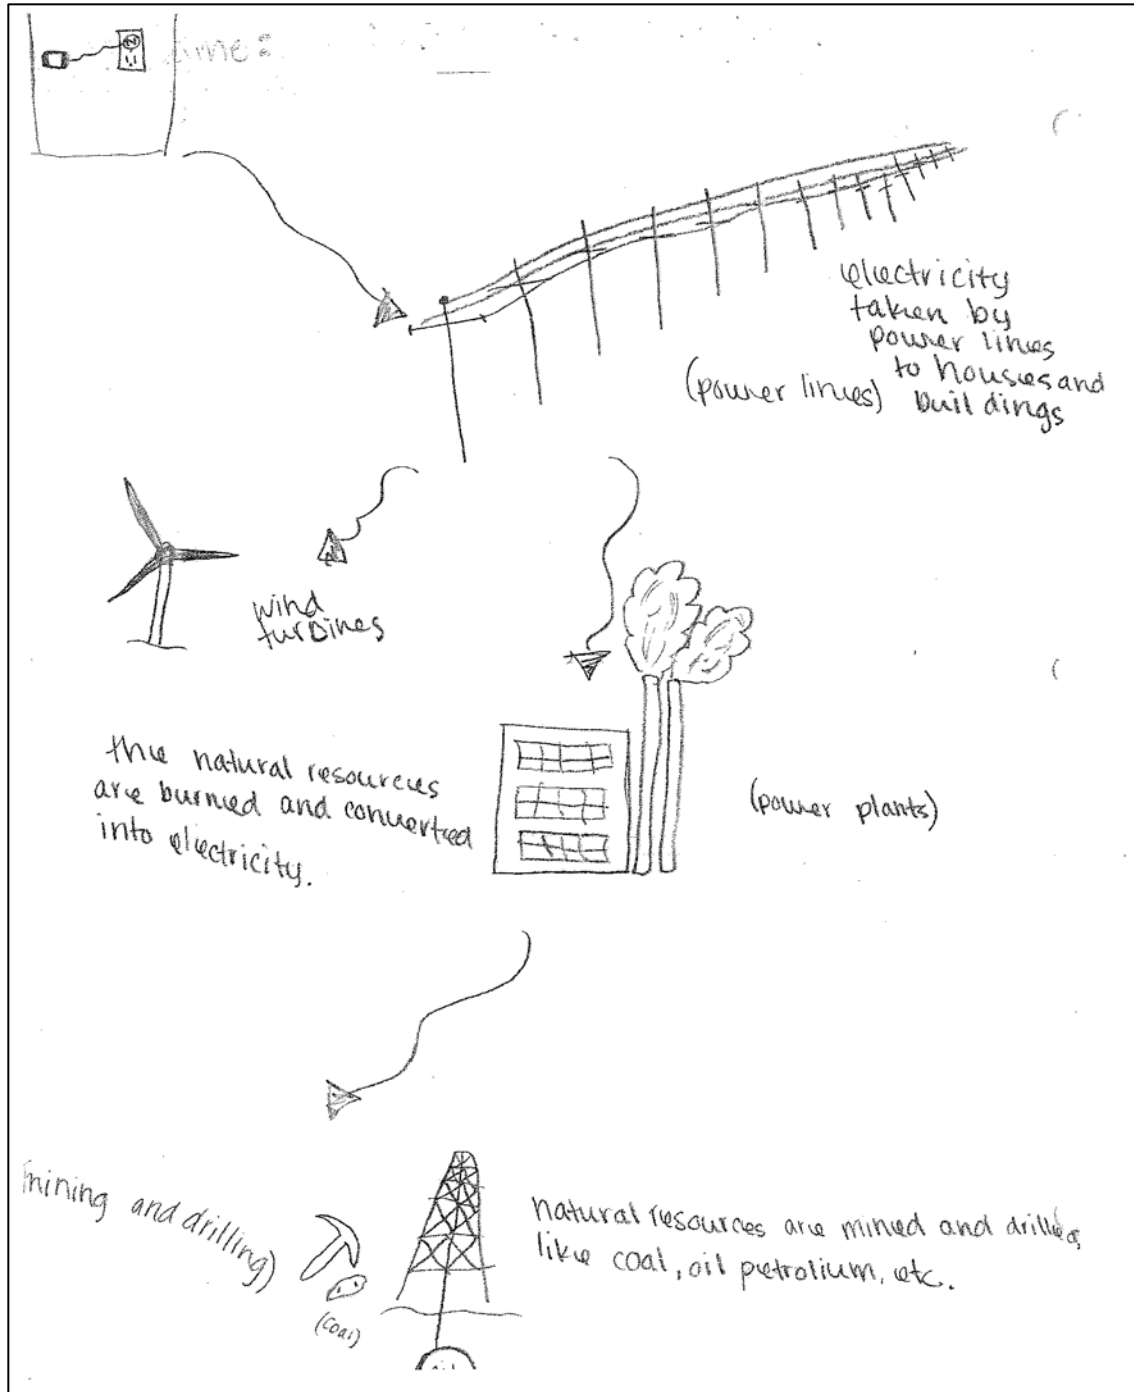 ame:
electricity
taken by
power lines
to houses and
buildings
(power lines)
wind
turbines
the natural resources
are burned and converted
into electricity.
(power plants)
mining and drilling)
(coal)
natural resources are mined and drilled,
like coal, oil petrolium, etc.
oil